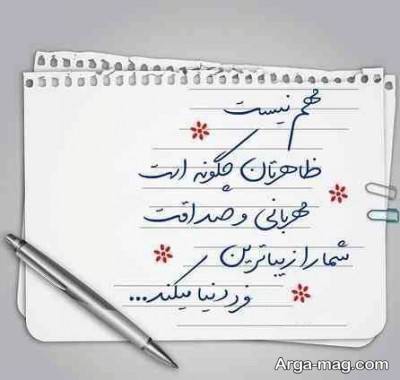 مهم نیست
ظاهرتان چگونه است
مهربانی و صداقت
شما را زیباترین
فرد دنیا میکند...
Arga-mag.com